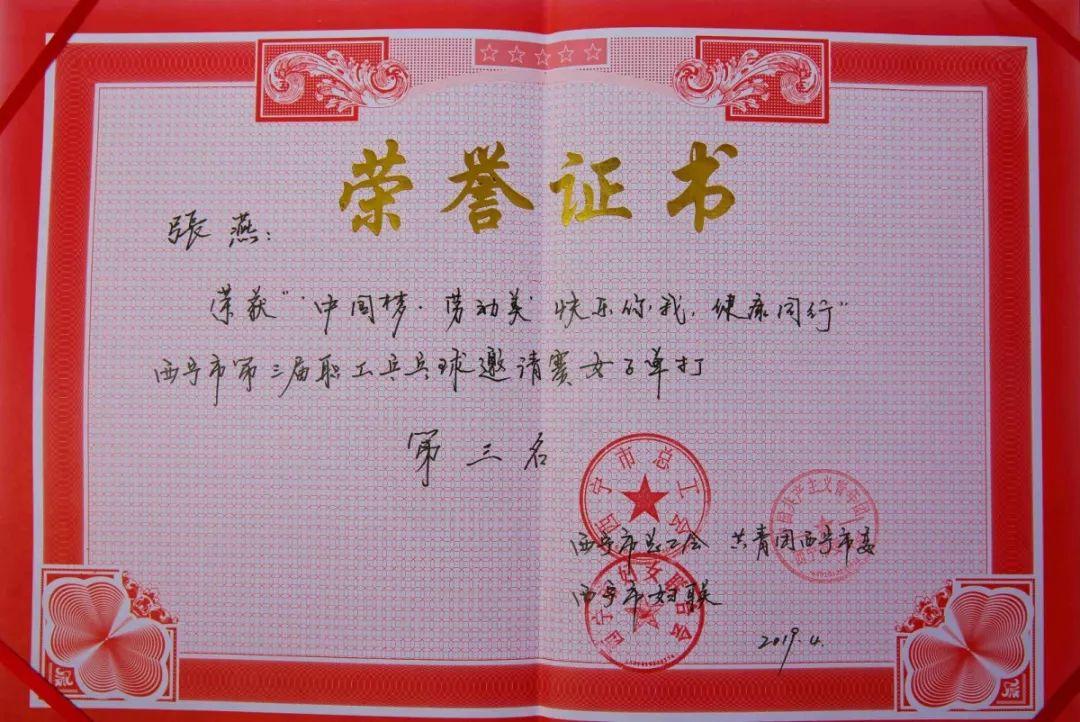 荣誉证书
張燕:
荣获"'中国梦·劳动美'快乐你我,健康同行"
西宁市第三届职工乒乓球邀请赛女子单打
第三名
西宁市总工会
西宁市总工会 共青团西宁市委
西宁市妇女联合会
西宁市妇联
2019.4.